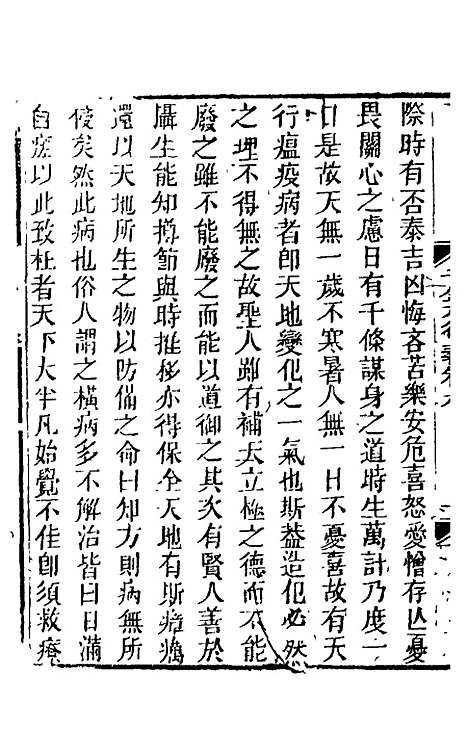 際時有否泰吉凶悔吝苦樂安危喜怒愛憎存亡憂
畏關心之慮日有千條謀身之道時生萬計乃度一
日是故天無一歲不寒暑人無一日不憂喜故有天
行瘟疫病者卽天地變化之一氣也斯葢造化必然
之理不得無之故聖人雖有補天立極之德而不能
廢之雖不能廢之而能以道御之其次有賢人善於
攝生能知撙節與時推移亦得保全天地有斯瘴癘
還以天地所生之物以防備之命曰知方則病無所
侵矣然此病也俗人謂之橫病多不解治皆曰日滿
自瘥以此致枉者天下大半凡始覺不佳卽須救療